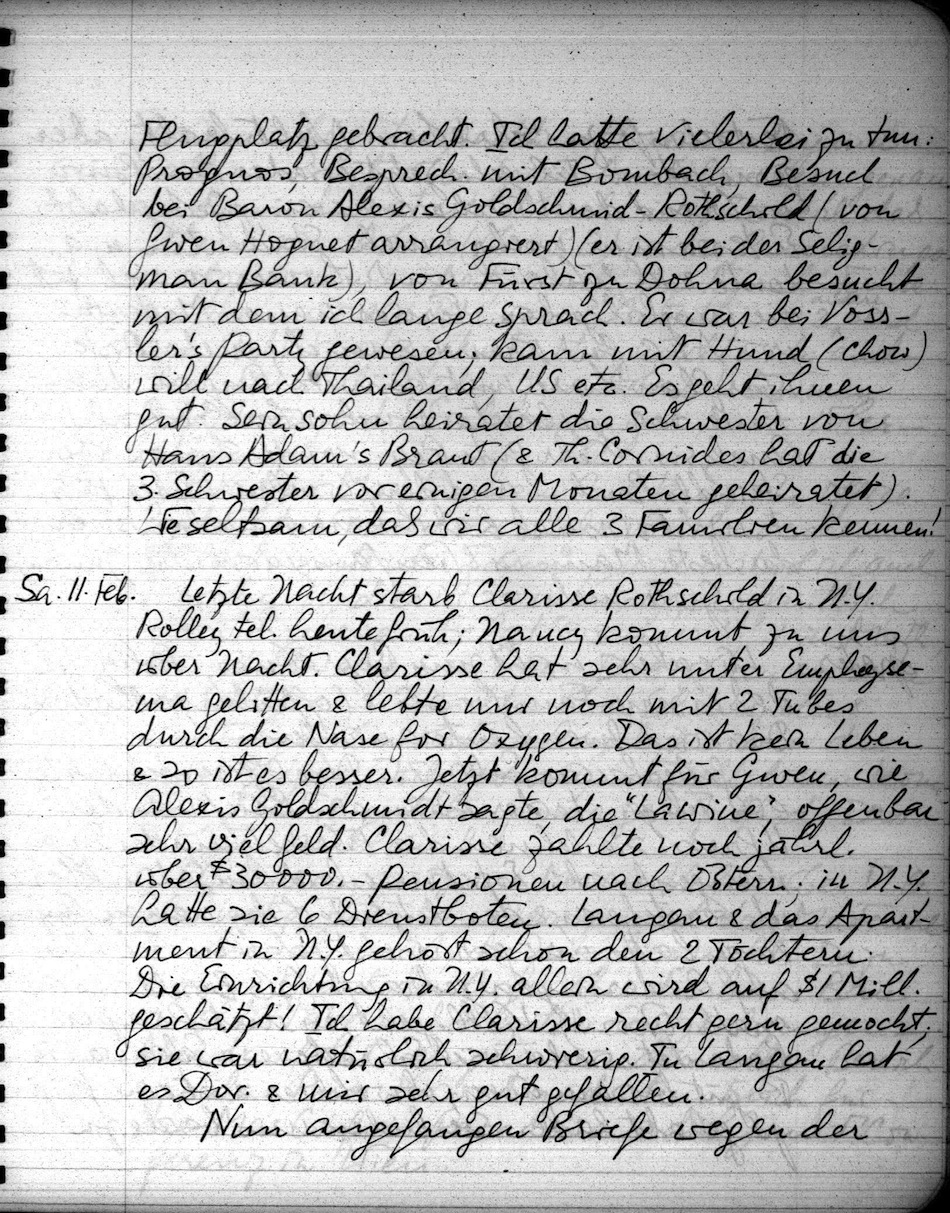 Flugplatz gebracht. Ich hatte vielerlei zu tun:
Prognos, Besprech. mit Bombach, Besuch
bei Baron Alexis Goldschmid-Rothschild (von
Gwen Hognet arrangiert) (er ist bei der Selig-
man Bank), von Fürst zu Dohna besucht
mit dem ich lange sprach. Er war bei Voss-
ler's Party gewesen; kam mit Hund (chow)
will nach Thailand, US etc. Es geht ihnen
gut. Sein Sohn heiratet die Schwester von
Hans Adam's Braut (& Th. Cornides hat die
3. Schwester vor einigen Monaten geheiratet).
Wie seltsam, daß wir alle 3 Familien kennen!
Sa. 11. Feb. Letzte Nacht starb Clarisse Rothschild in N.Y.
Rolley tel. heute früh; Nancy kommt zu uns
über Nacht. Clarisse hat sehr unter Emphyse-
ma gelitten & lebte nur noch mit 2 Tubes
durch die Nase for Oxygen. Das ist kein Leben
& so ist es besser. Jetzt kommt für Gwen, wie
Alexis Goldschmidt sagte, die "Lawine", offenbar
sehr viel Geld. Clarisse zahlte noch jährl.
über $30000.- Pensionen nach Österr.; in N.Y.
hatte sie 6 Dienstboten. Langau & das Apart-
ment in N.Y. gehört schon den 2 Töchtern.
Die Einrichtung in N.Y. allein wird auf $1 Mill.
geschätzt! Ich habe Clarisse recht gern gemocht;
sie war natürlich schwierig. In Langau hat
es Dor. & mir sehr gut gefallen.
Nun angefangen Briefe wegen der